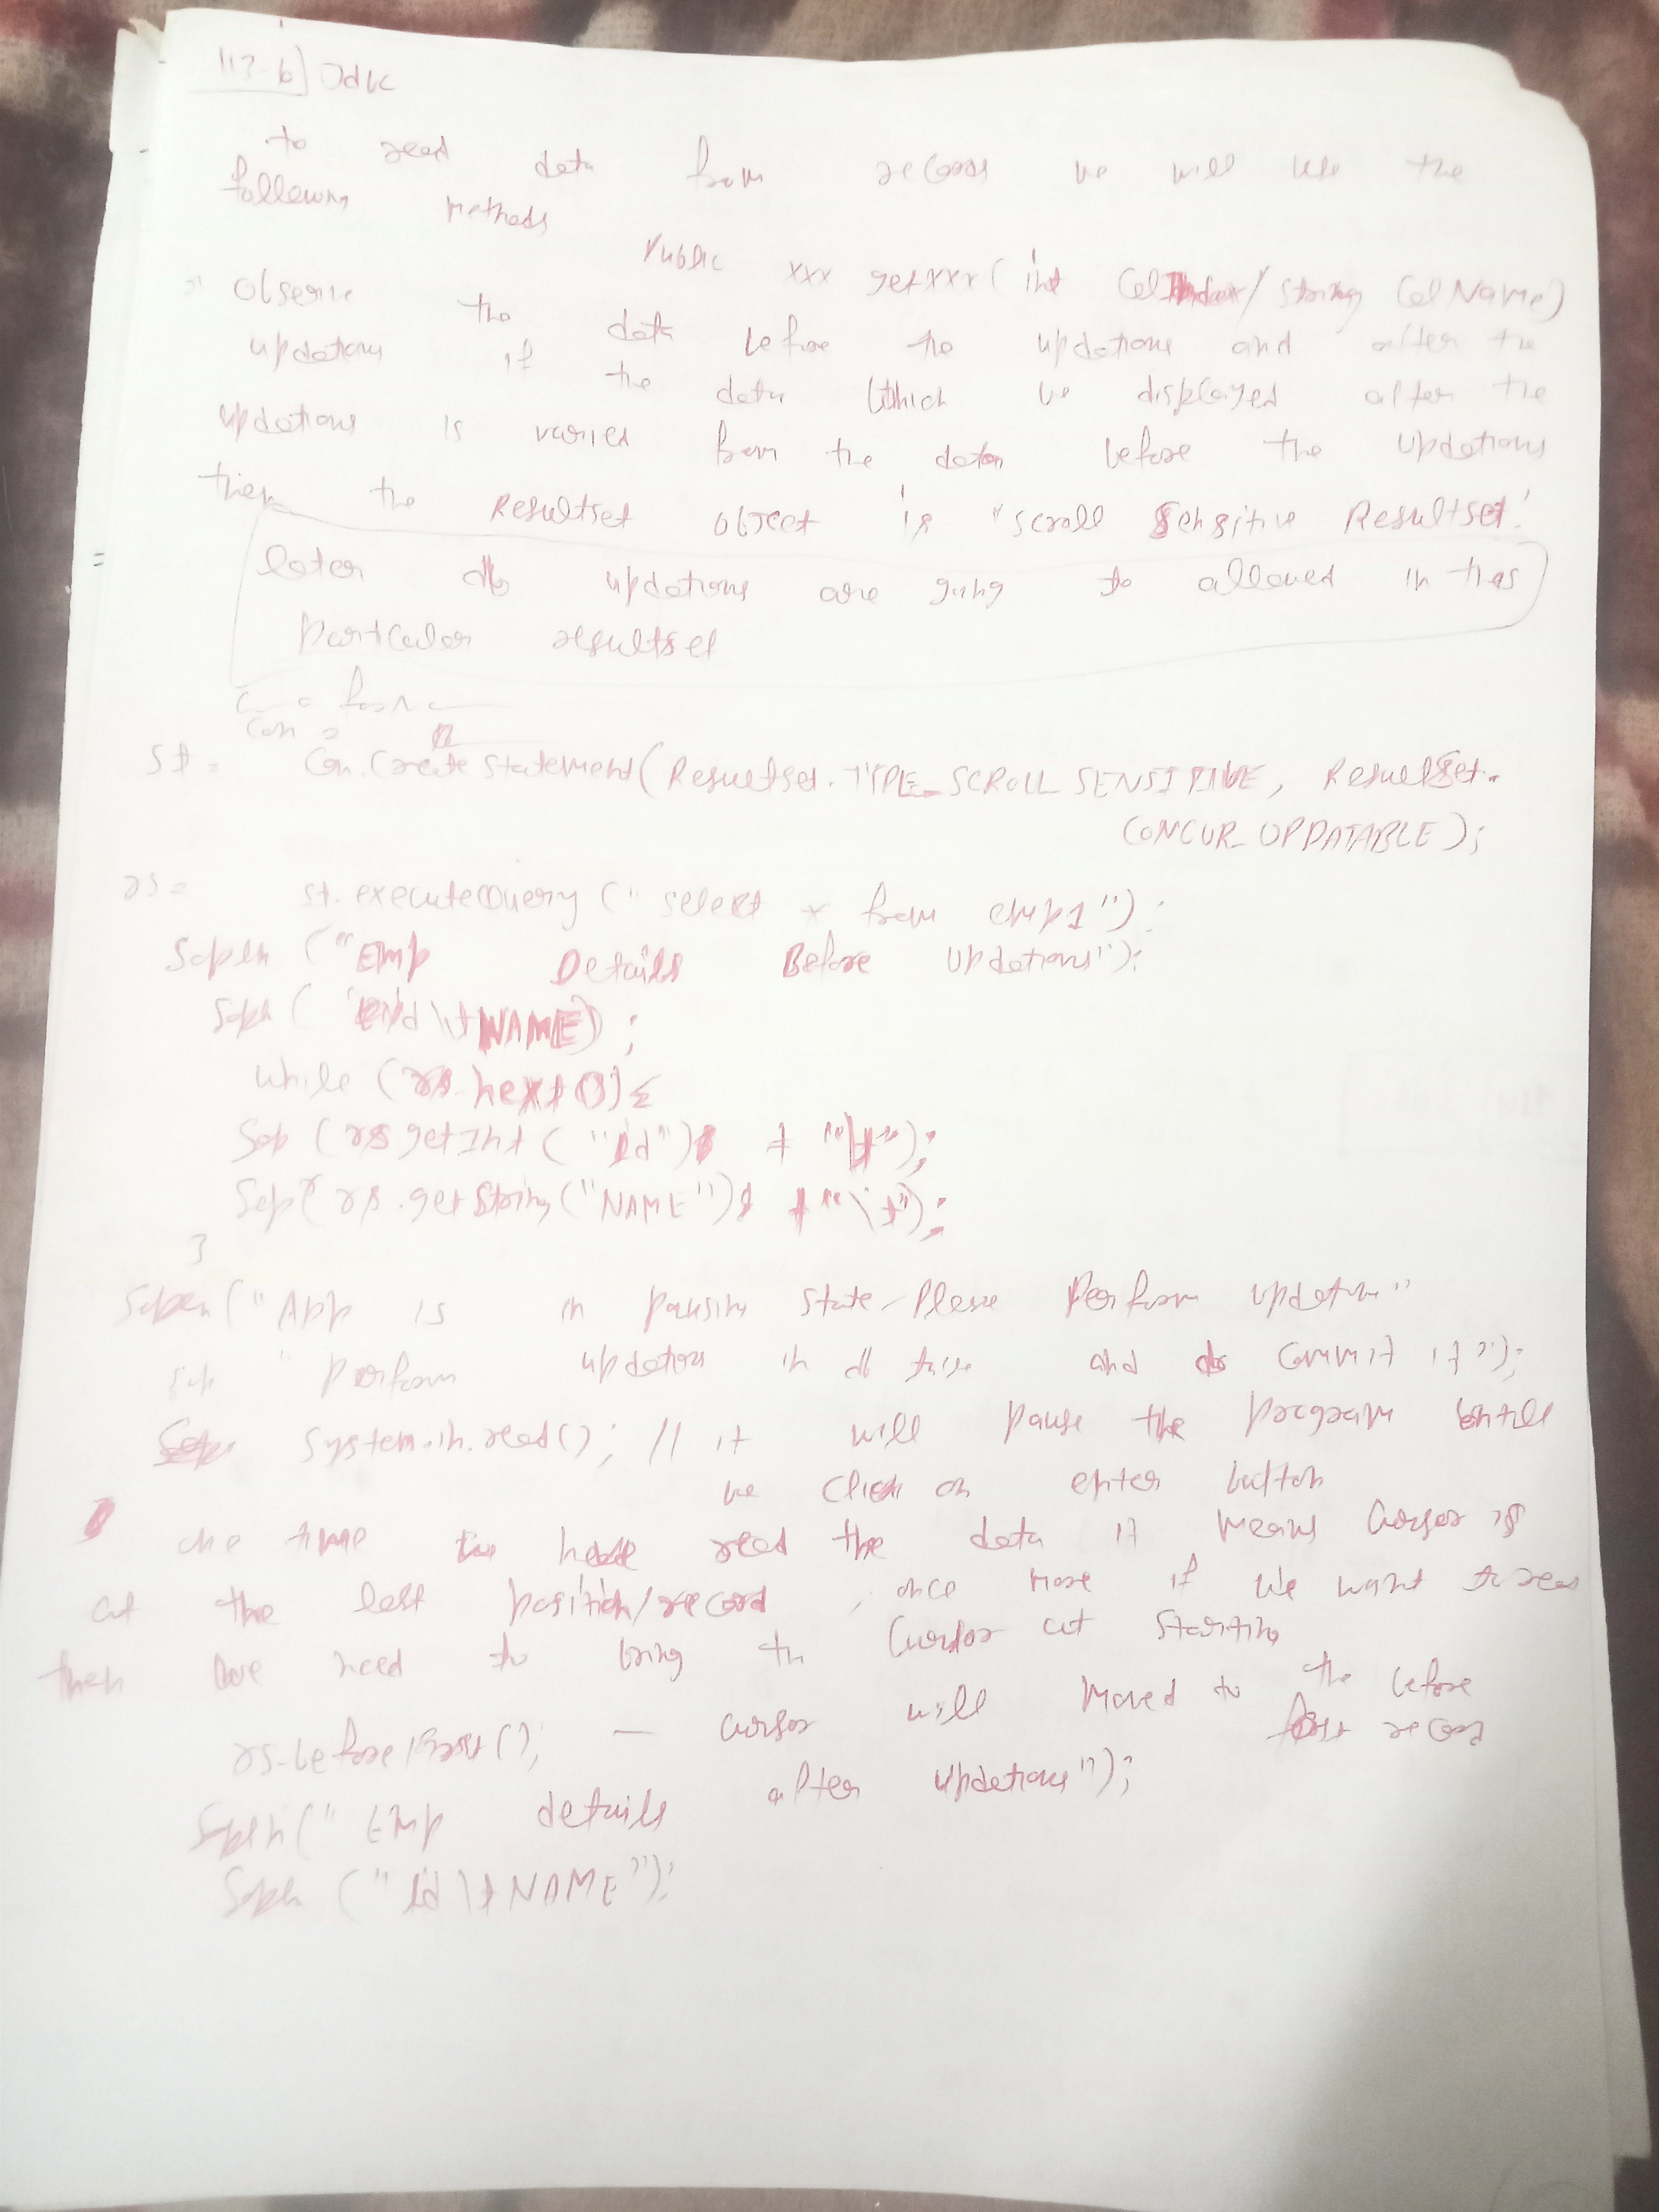 113-b] Jdbc
to read data from records we will use the
following methods
Public xxx getxxx( int ColIndex/ String ColName)
Observe the data before the updations and after the
updations if the data which we displayed after the
updations is varied from the data before the updations
then the Resultset object is "scroll Sensitive Resultset'
later db updations are going to allowed in this
particular resultset
con =
st = Con.Create Statement(Resultset.TYPE_SCROLL SENSITIVE, ResultSet.
CONCUR_UPDATABLE);
rs = st.executeQuery (" select * from emp1");
Sopln ("Emp Details Before Updations");
Sopln ( id \t NAME);
while (rs.next()) {
Sop (rs getInt ( "id") + "\t");
Sop( rs.getString("NAME") + "\t");
}
Sopln("App is in pausing state Please Perform updations"
" perform updations in db and do commit it");
System.in.read(); // it will pause the program untill
we click on enter button
one time we have read the data it means Cursor is
at the last position/record , once more if we want to read
then we need to bring the Cursor at starting
rs.beforeFirst(); — cursor will moved to the before
first record
Sopln(" Emp details after updations");
Sopln (" id \t NAME");